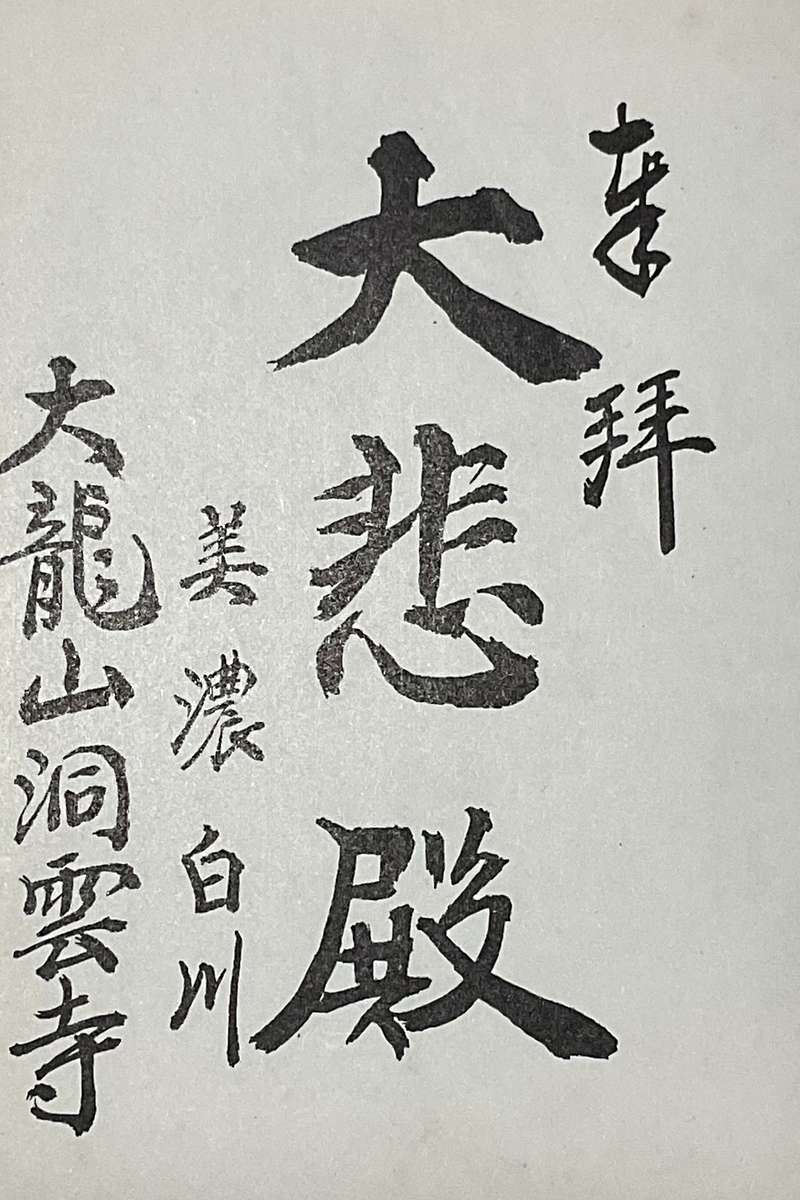 奉拜
大悲殿
美濃白川
大龍山洞雲寺